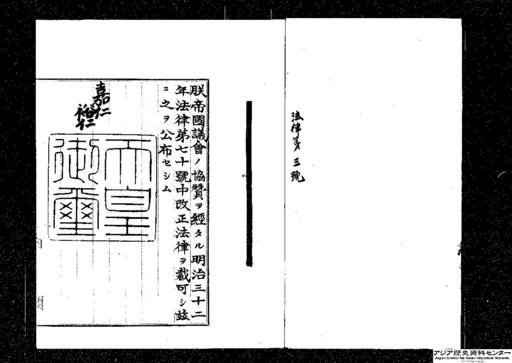 法律第三號
朕帝國議會ノ協贊ヲ經タル明治三十二
年法律第七十號中改正法律ヲ裁可シ茲
ニ之ヲ公布セシム
嘉仁
裕仁
天皇
御璽
アジア歴史資料センター
Japan Center for Asian Historical Records